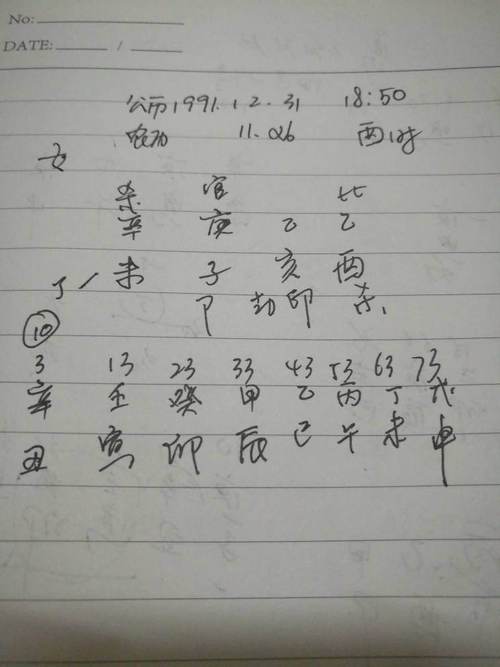 No:
DATE: /
公历1991.12.31 18:50
农历 11.26 酉时
女
杀 官 比
辛 庚 乙 乙
未 子 亥 酉
卩 劫印 杀
⑩
3 13 23 33 43 53 63 73
辛 壬 癸 甲 乙 丙 丁 戊
丑 寅 卯 辰 巳 午 未 申